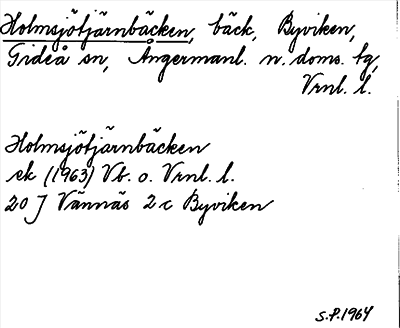 Holmsjötjärnbäcken, bäck, Byviken,
Gideå sn, Ångermanl. n. doms. fg,
Vrnl. l.
Holmsjötjärnbäcken
ek (1963) Vb. o. Vrnl. l.
20 J Vännäs 2 c Byviken
S.P. 1964